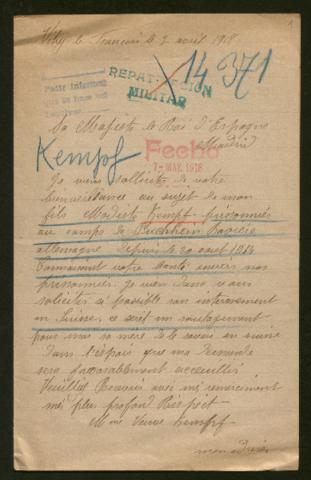 Vitry le François le 7 avril 1918
Pedir informes
REPATRIACION
MILITAR
14371
Sa Majesté le Roi d'Espagne
Madrid
Kempf
Fecho
7-MAY. 1918
Je viens solliciter de votre
bienveillance au sujet de mon
fils Modeste Kempf prisonnier
au camps de Puchheim Bavière
allemagne depuis le 20 aout 1914
Connaissant votre bonté envers nos
prisonniers je viens donc vous
solliciter si possible son internement
en Suisse, ce serait un soulagement
pour moi sa mère de le savoir en suisse
dans l'espoir que ma demande
sera favorablement accueillie
Veuillez Recevoir avec mes remerciement
mes plus profond Respect
Mme Veuve Kempf
mon adresse